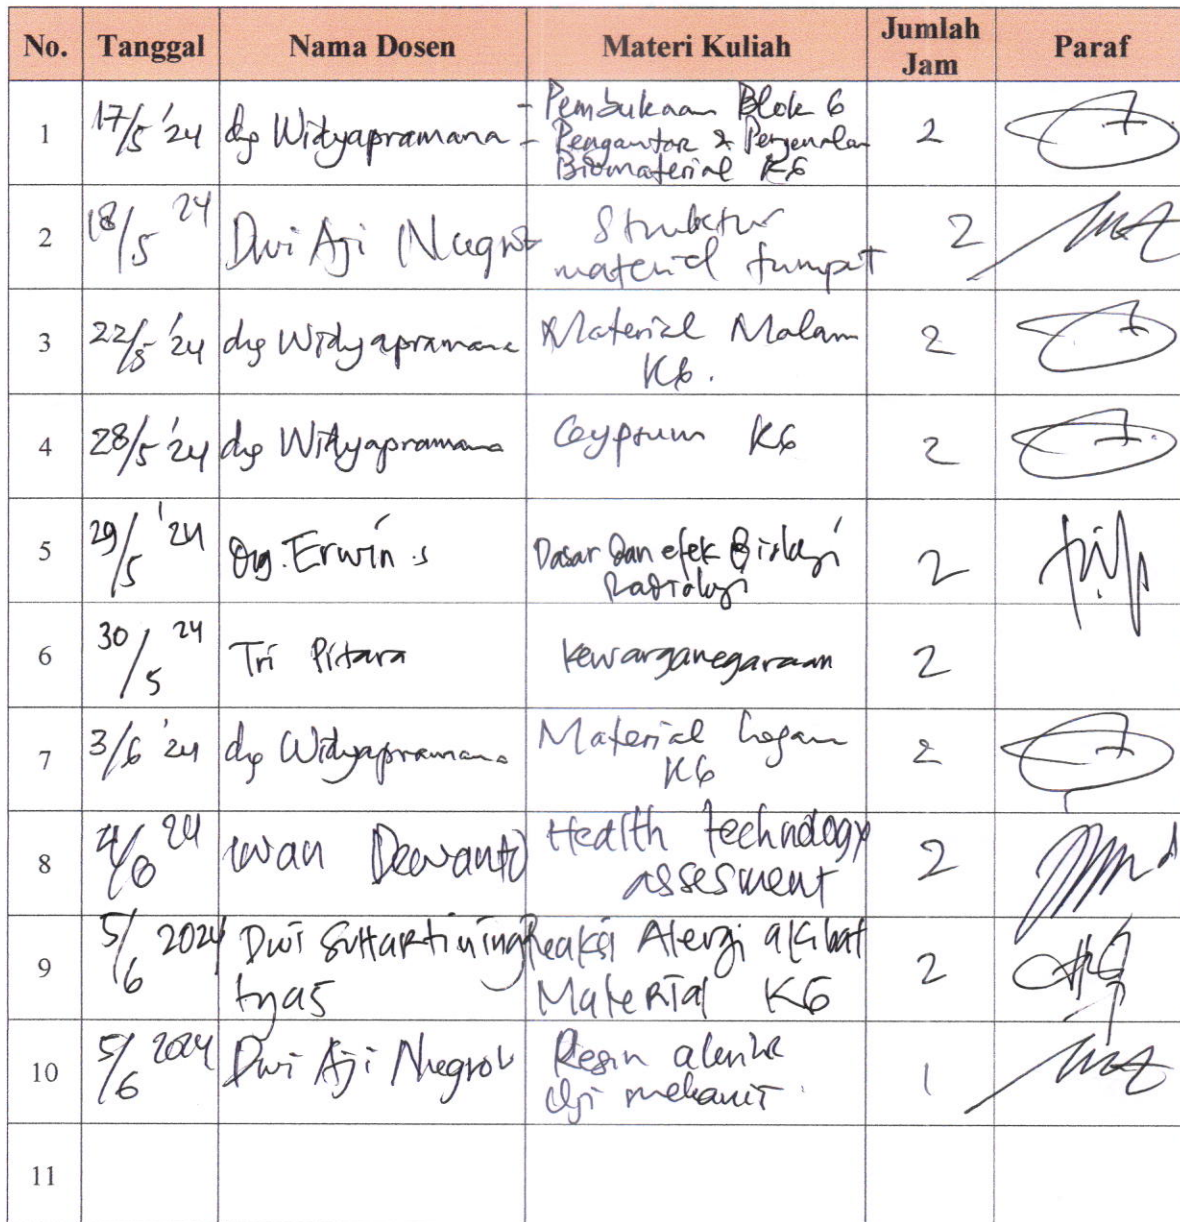 No. Tanggal Nama Dosen Materi Kuliah Jumlah Jam Paraf
1 17/5 '24 drg Widyapramana - Pembukaan Blok 6
- Pengantar & Pengenalan
Biomaterial KG 2
2 18/5 24 Dwi Aji Nugroho Struktur
material tumpat 2
3 22/5 '24 drg Widyapramana Material Malam
KG. 2
4 28/5 '24 drg Widyapramana Gypsum KG 2
5 29/5 '24 Drg. Erwin s Dasar dan efek Biologi
Radiologi 2
6 30/5 24 Tri Pitara Kewarganegaraan 2
7 3/6 '24 drg Widyapramana Material Logam
KG 2
8 4/6 24 Iwan Dewanto Health technology
assesment 2
9 5/6 2024 Dwi Suhartiningtyas Reaksi Alergi akibat
Material KG 2
10 5/6 2024 Dwi Aji Nugroho Resin akrilik
Uji mekanik 1
11